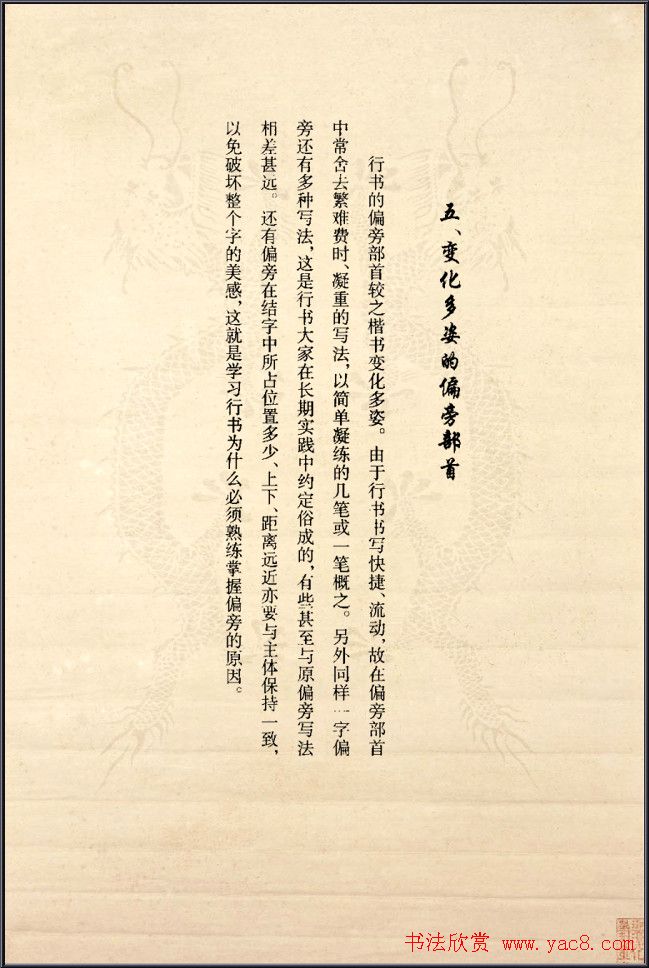 五、变化多姿的偏旁部首
行书的偏旁部首较之楷书变化多姿。由于行书书写快捷、流动，故在偏旁部首
中常舍去繁难费时、凝重的写法，以简单凝练的几笔或一笔概之。另外同样一字偏
旁还有多种写法，这是行书大家在长期实践中约定俗成的，有些甚至与原偏旁写法
相差甚远。还有偏旁在结字中所占位置多少、上下、距离远近亦要与主体保持一致，
以免破坏整个字的美感，这就是学习行书为什么必须熟练掌握偏旁的原因。
书法欣赏 www.yac8.com